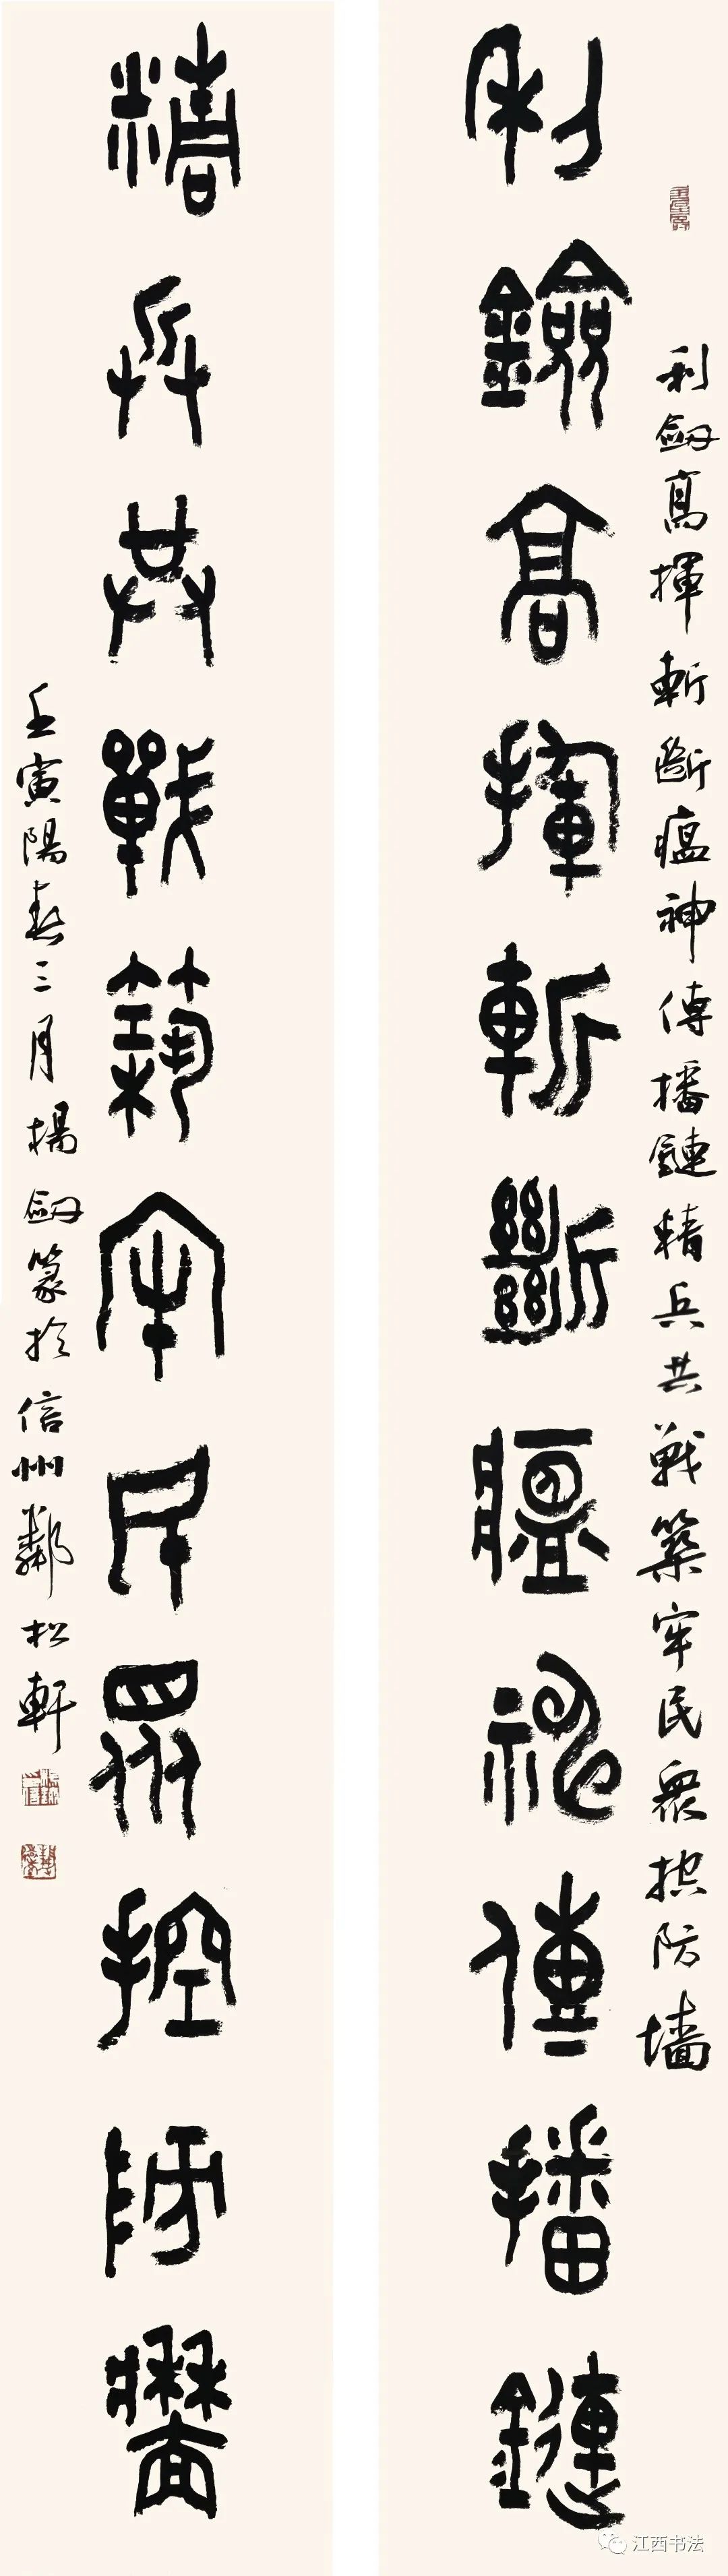 利劔高揮斬斷瘟神傳播鏈精兵共戰築牢民衆控防墻
利鐱高揮斬斷瘟神傳播鏈
精兵共戰築牢民眾控防牆
壬寅陽春三月楊劔篆於信州鄰松軒
江西书法